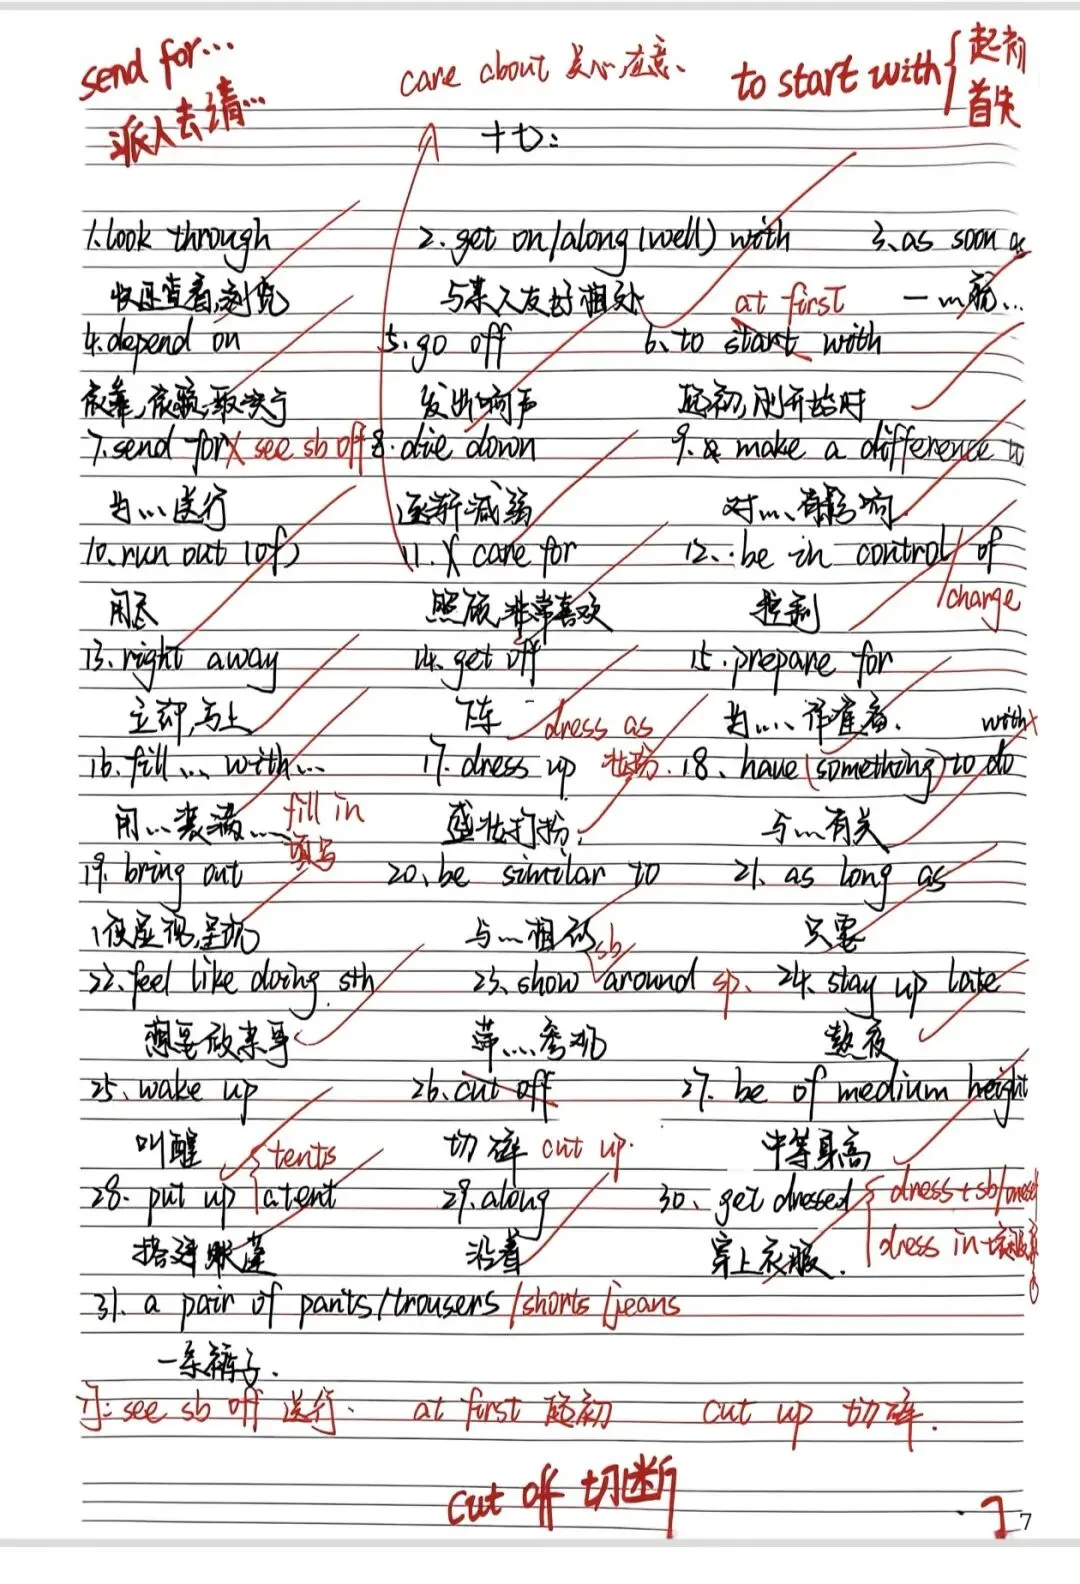 send for...
派人去请...
care about 关心,在意、
to start with { 起初
首先
十七:
1.look through 2.get on/along (well) with 3.as soon as
快速查看,浏览 与某人友好相处 at first 一...就...
4.depend on 5.go off 6.to start with
依靠,依赖,取决于 发出响声 起初,刚开始时
7.send for X see sb off 8.die down 9. make a difference to
为...送行 逐渐减弱 对...、有影响
10.run out (of) 11.X care for 12.be in control / of
用尽 照顾,非常喜欢 控制 / charge
13.right away 14.get off 15.prepare for
立即,马上 下车 dress as 为...、作准备. with
16.fill ... with... 17.dress up 装扮. 18、have (something) to do
用...装满... fill in 盛妆打扮. 与...有关
填写
19.bring out 20、be similar to 21、as long as
使显现,呈现 与...相似 只要
22.feel like doing sth 23、show sb around sp. 24.stay up late
想要做某事 带...参观 熬夜
25、wake up 26.cut off 27.be of medium height
叫醒 tents 切碎 cut up. 中等身高
28.put up a tent 29.along 30、get dressed { dress + sb/oneself
搭建帐篷 沿着 穿上衣服. dress in +衣服
31.a pair of pants/trousers/shorts/jeans
一条裤子.
订: see sb off 送行. at first 起初 cut up 切碎.
cut off 切断
7